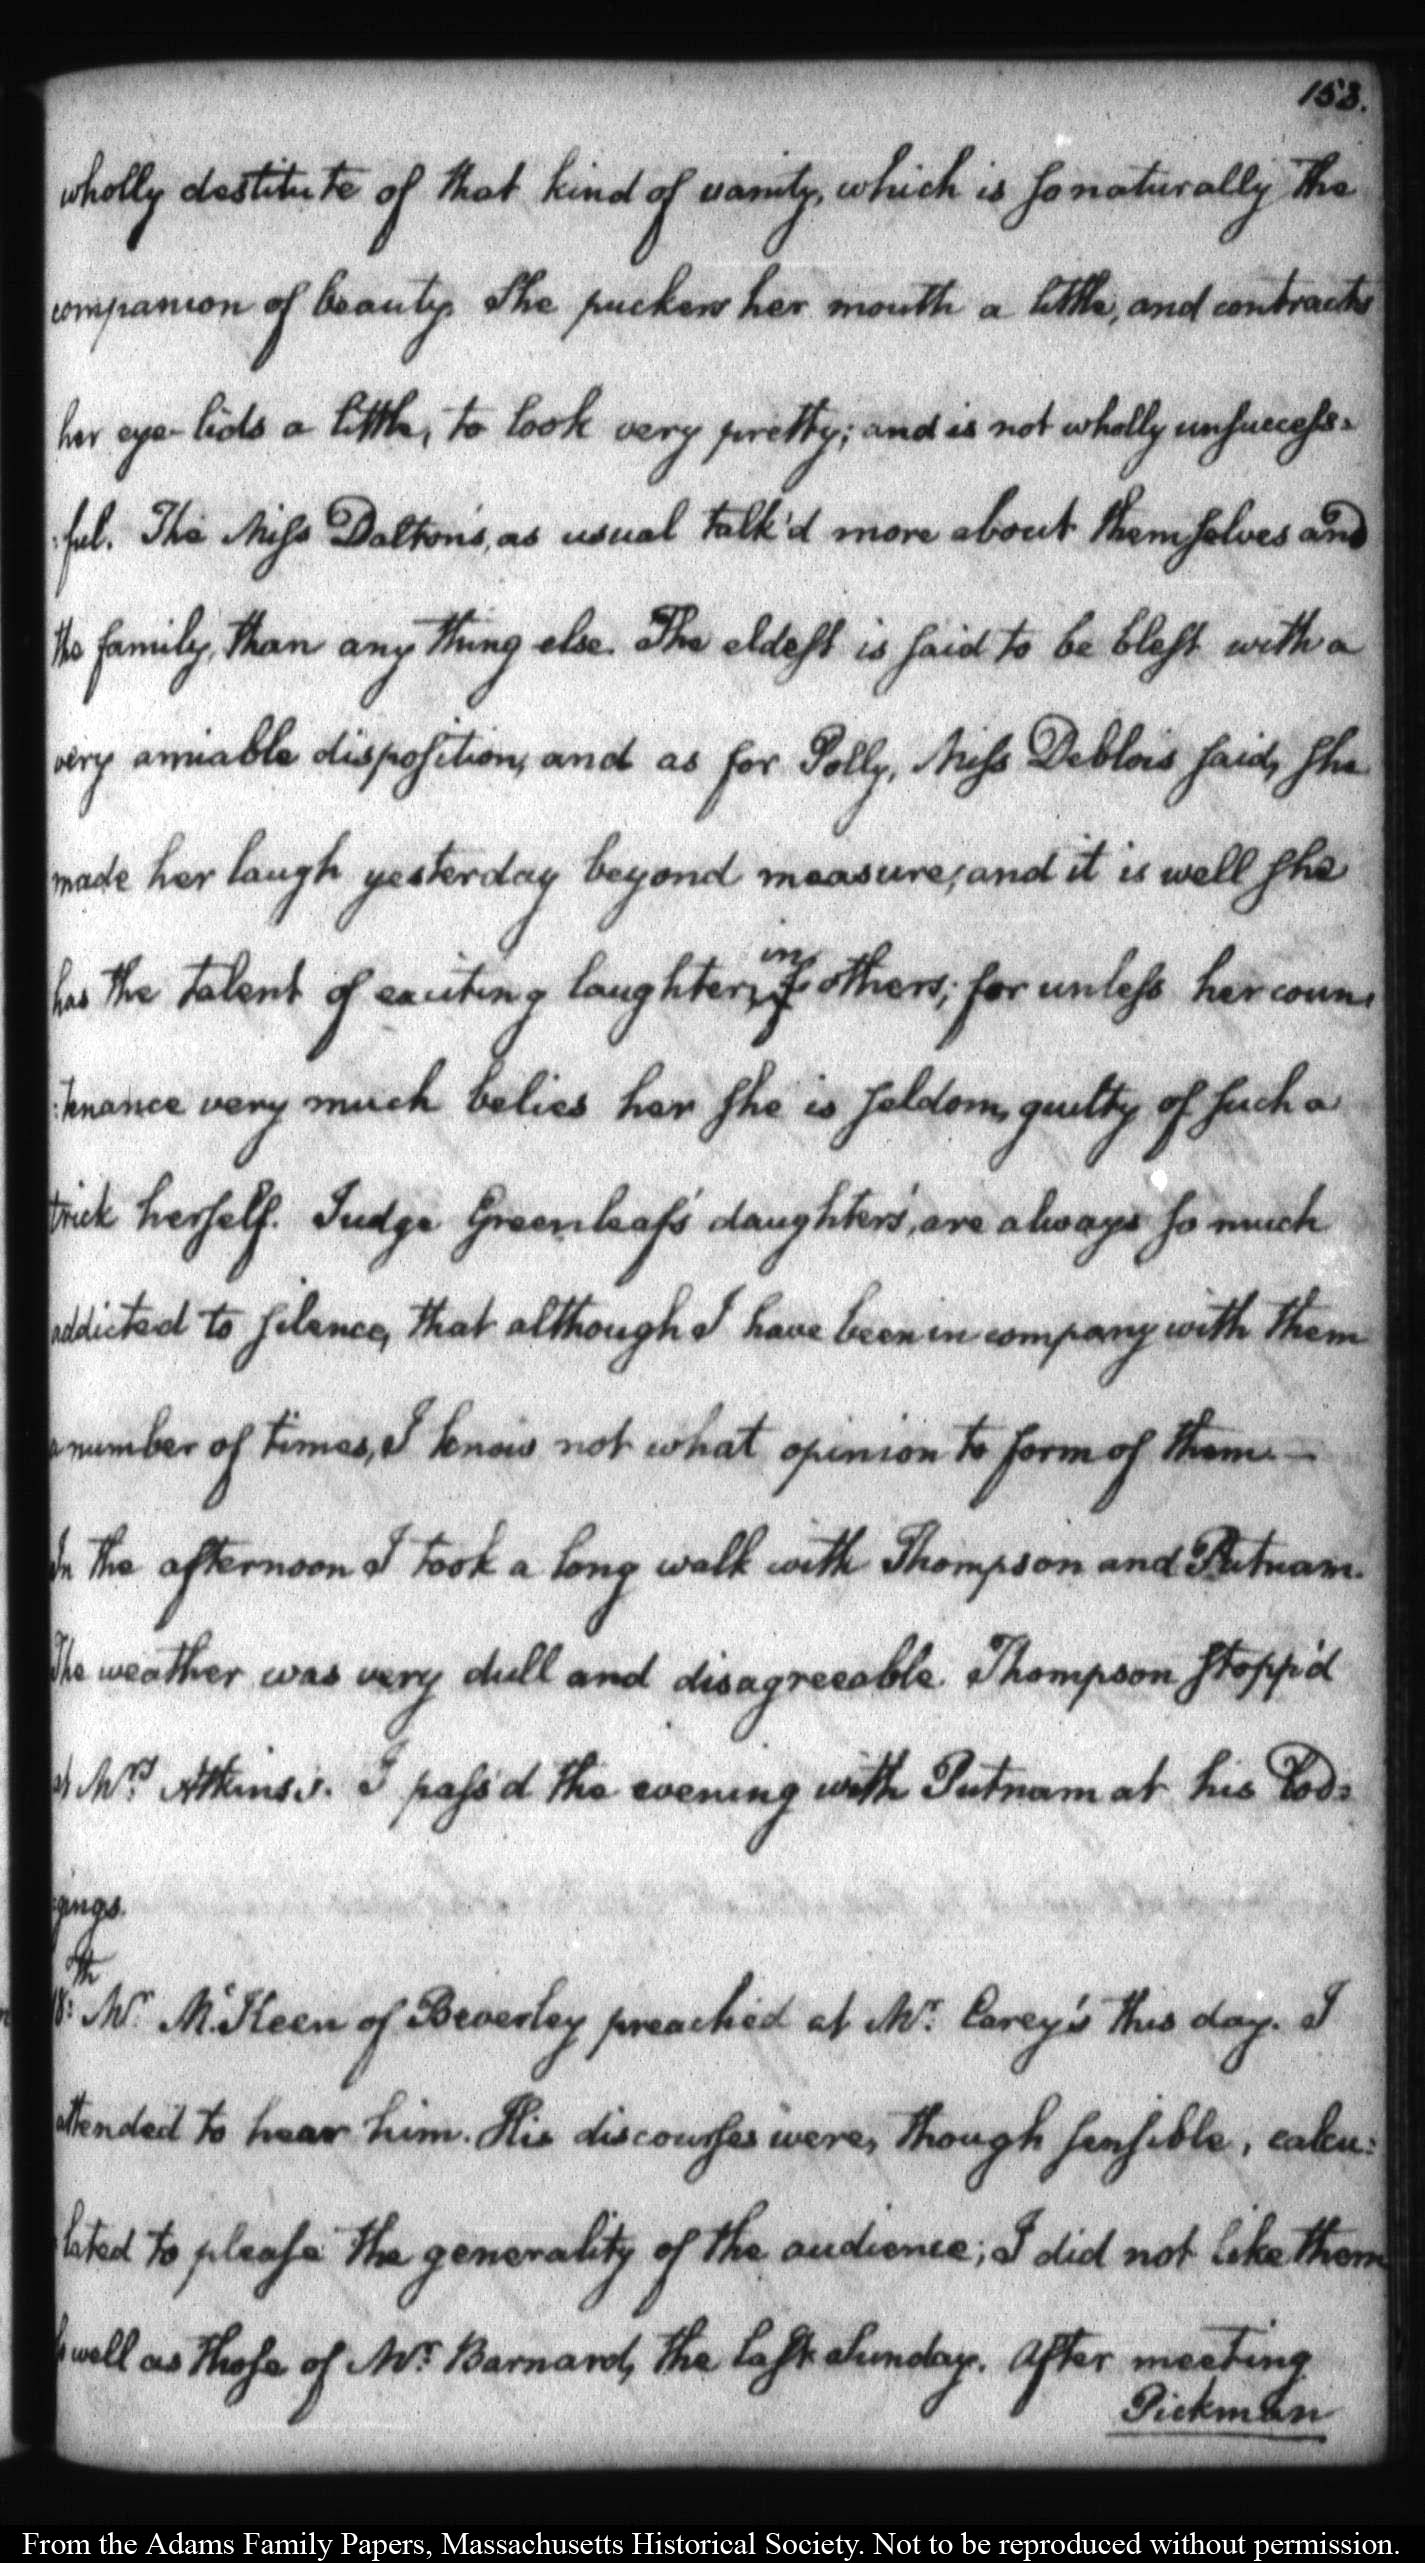 153.
wholly destitute of that kind of vanity, which is so naturally the
companion of beauty. She puckers her mouth a little, and contracts
her eye-lids a little, to look very pretty; and is not wholly unsuccess=
:ful. The Miss Dalton's, as usual talk'd more about themselves and
the family, than any thing else. The eldest is said to be blest with a
very amiable disposition, and as for Polly, Miss Deblois said, she
made her laugh yesterday beyond measure; and it is well she
in
has the talent of exciting laughter, others; for unless her coun:
:tenance very much belies her she is seldom, guilty of such a
trick herself. Judge Greenleaf's daughters', are always so much
addicted to silence, that although I have been in company with them
a number of times, I know not what opinion to form of them.—
In the afternoon I took a long walk with Thompson and Putnam.
The weather was very dull and disagreeable. Thompson stopp'd
at Mrs. Atkins's. I pass'd the evening with Putnam at his Lod=
gings.
18:th Mr. McKeen of Beverley preached at Mr. Carey's this day. I
attended to hear him. His discourses were, though sensible, calcu:
:lated to please the generality of the audience; I did not like them
so well as those of Mr. Barnard, the last Sunday. After meeting
Pickman
From the Adams Family Papers, Massachusetts Historical Society. Not to be reproduced without permission.